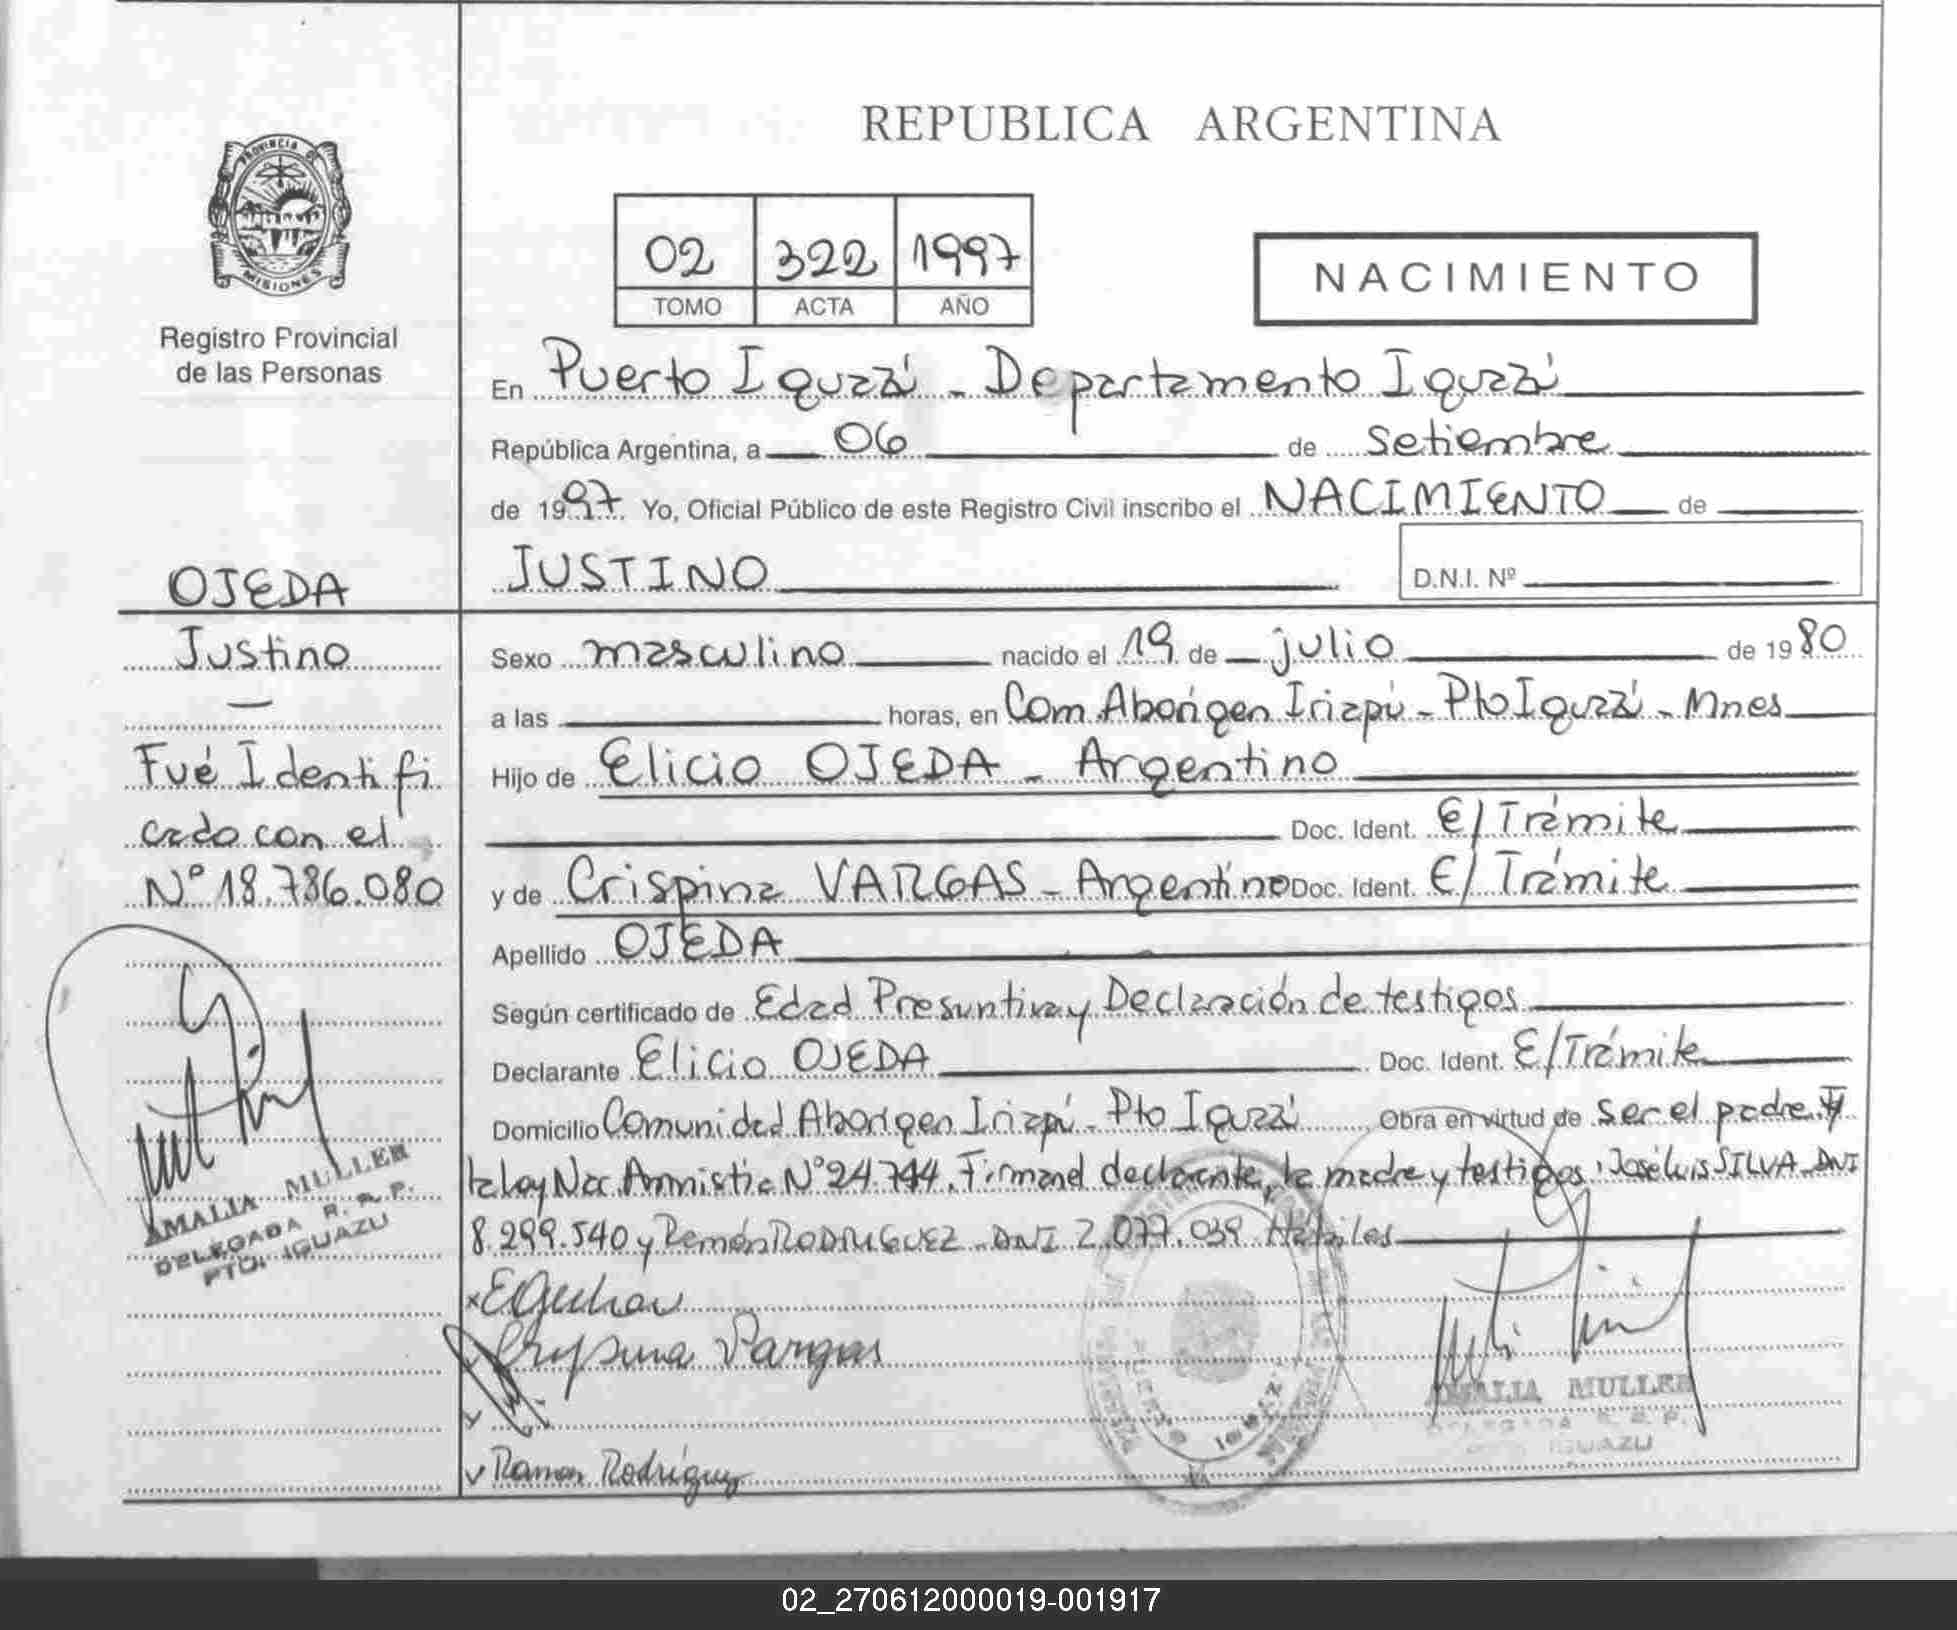 PROVINCIA DE
MISIONES
Registro Provincial
de las Personas
OJEDA
Justino
Fué Identifi
cado con el
Nº 18.786.080
AMALIA MULLER
DELEGADA R. R. P.
PTO. IGUAZU
REPUBLICA ARGENTINA
02 322 1997
TOMO ACTA AÑO
NACIMIENTO
En Puerto Iguazú - Departamento Iguazú
República Argentina, a 06 de Setiembre
de 1997. Yo, Oficial Público de este Registro Civil inscribo el NACIMIENTO de
JUSTINO D.N.I. Nº
Sexo masculino nacido el 19 de julio de 1980
a las horas, en Com. Aborigen Iriapú - Pto Iguazú - Mnes
Hijo de Elicio OJEDA - Argentino
Doc. Ident. E/Trámite
y de Crispina VARGAS - Argentino Doc. Ident. E/Trámite
Apellido OJEDA
Según certificado de Edad Presuntiva y Declaración de testigos
Declarante Elicio OJEDA Doc. Ident. E/Trámite
Domicilio Comunidad Aborigen Iriapú - Pto Iguazú Obra en virtud de ser el padre y
la Ley Nac Amnistia Nº 24.744. Firmand declarante, la madre y testigos: José Luis SILVA DNI
8.299.540 y Ramón RODRIGUEZ - DNI 2.077.039 Hábiles
Crypsina Vargas
Ramon Rodriguez
AMALIA MULLER
DELEGADA R. R. P.
IGUAZU
02_270612000019-001917